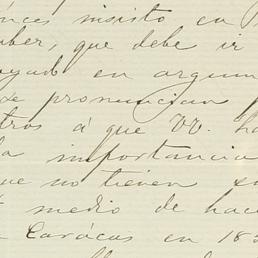 insisto en
que debe ir
en argum
de pronuncian
tros á que VV. ha
la importancia
que no tienen su
medio de hace
Carácas en 185